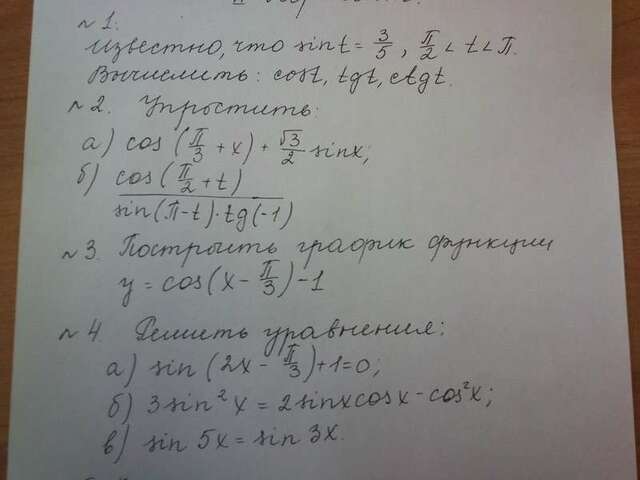 №1.
Известно, что sint = 3/5, π/2 < t < π.
Вычислить: cost, tgt, ctgt.
№2. Упростить:
а) cos(π/3 + x) + √3/2 sinx;
б) cos(π/2 + t)
sin(π-t)·tg(-1)
№3. Построить график функции
y = cos(x - π/3) - 1
№4. Решить уравнения:
а) sin(2x - π/3) + 1 = 0;
б) 3sin²x = 2sinxcosx - cos²x;
в) sin5x = sin3x.